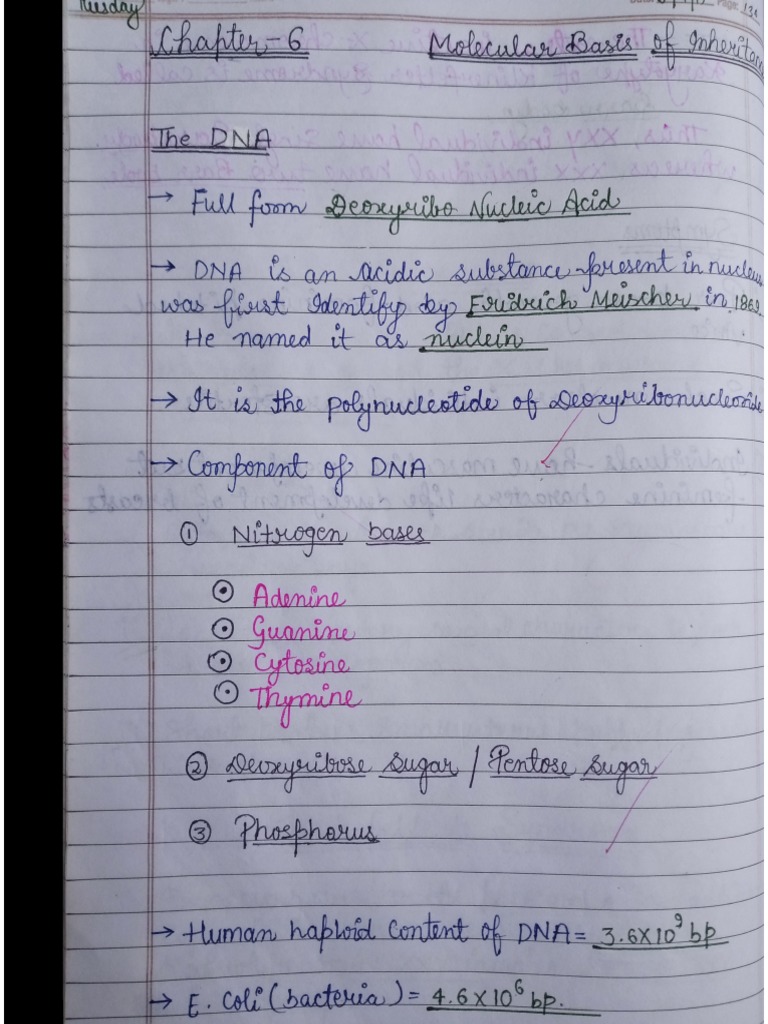 Tuesday Page: 131
Chapter-6 Molecular Basis of Inheritan
The DNA
→ Full form Deoxyribo Nucleic Acid
→ DNA is an acidic substance present in nucleus
was first Identify by Fridrich Meischer in 1869
He named it as nuclein
→ It is the polynucleotide of Deoxyribonucleotide
→ Component of DNA
① Nitrogen bases
Adenine
Guanine
Cytosine
Thymine
② Deoxyribose sugar / Pentose sugar
③ Phosphorus
→ Human haploid content of DNA = 3.6×10⁹ bp
→ E. coli (bacteria) = 4.6×10⁶ bp.